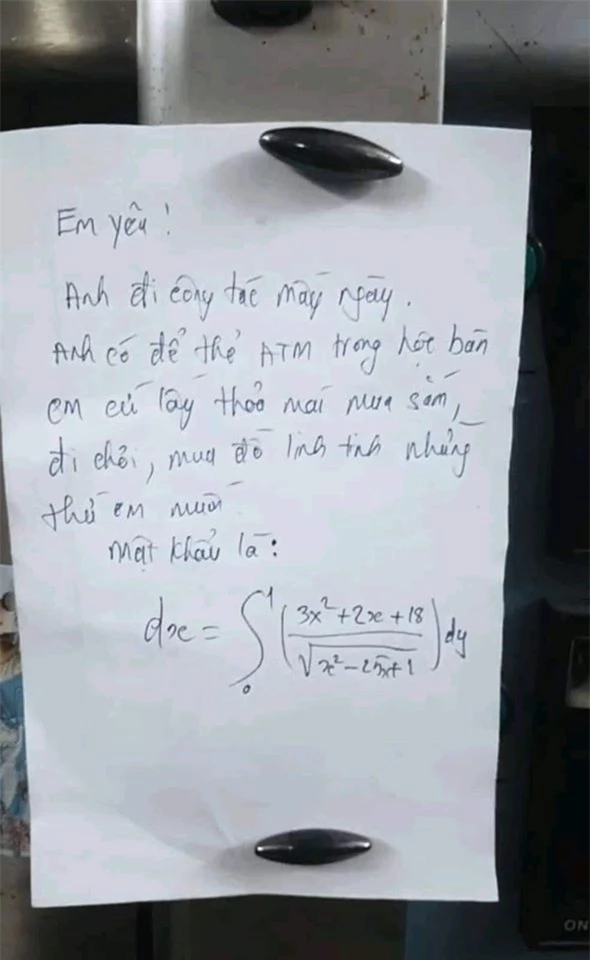 Em yêu!
Anh đi công tác mấy ngày.
Anh có để thẻ ATM trong hộc bàn
em cứ lấy thoả mái mua sắm,
đi chơi, mua đồ linh tinh những
thứ em muốn
Mật khẩu là:
dx = ∫₀¹ ((3x² + 2x + 18)/√(x² - 25x + 1)) dy
ON